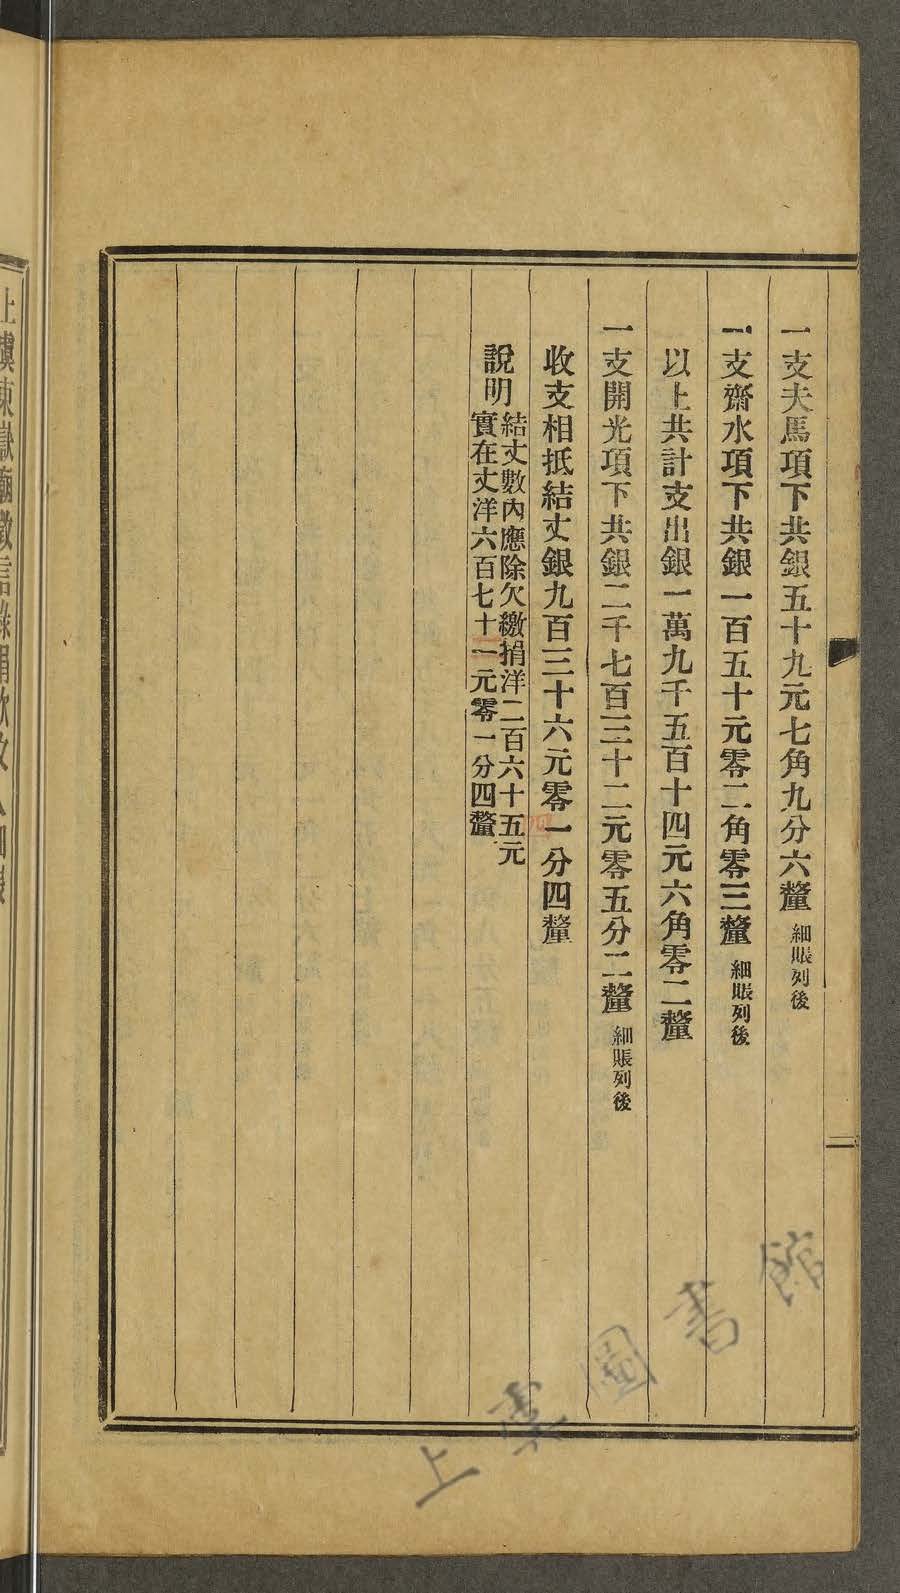 一支夫馬項下共銀五十九元七角九分六釐 細賬列後
一支齋水項下共銀一百五十元零二角零三釐 細賬列後
以上共計支出銀一萬九千五百十四元六角零二釐
一支開光項下共銀二千七百三十二元零五分二釐 細賬列後
收支相抵結丈銀九百三十六元零一分四釐
四
說明
結丈數內應除欠繳捐洋二百六十五元
實在丈洋六百七十一元零一分四釐
上虞東嶽廟徵信錄捐款收入細賬
上虞圖書館